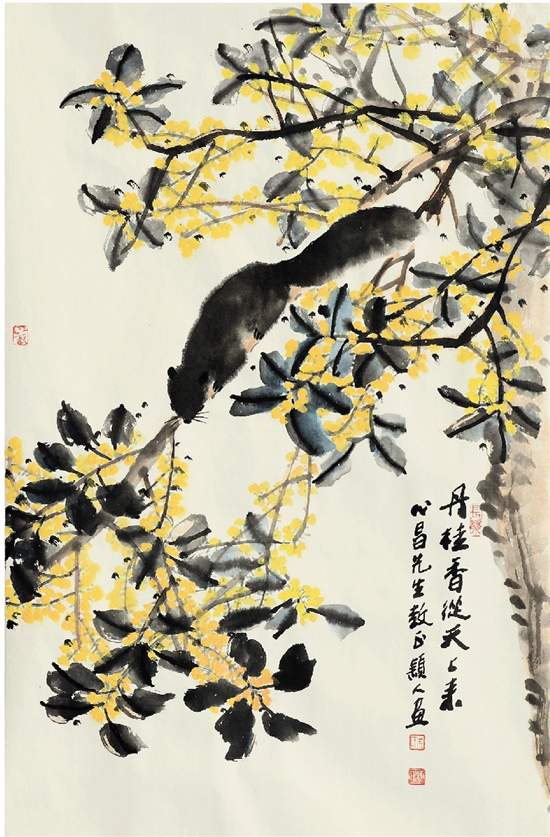 丹桂香從天上来
心昌先生教正穎人画